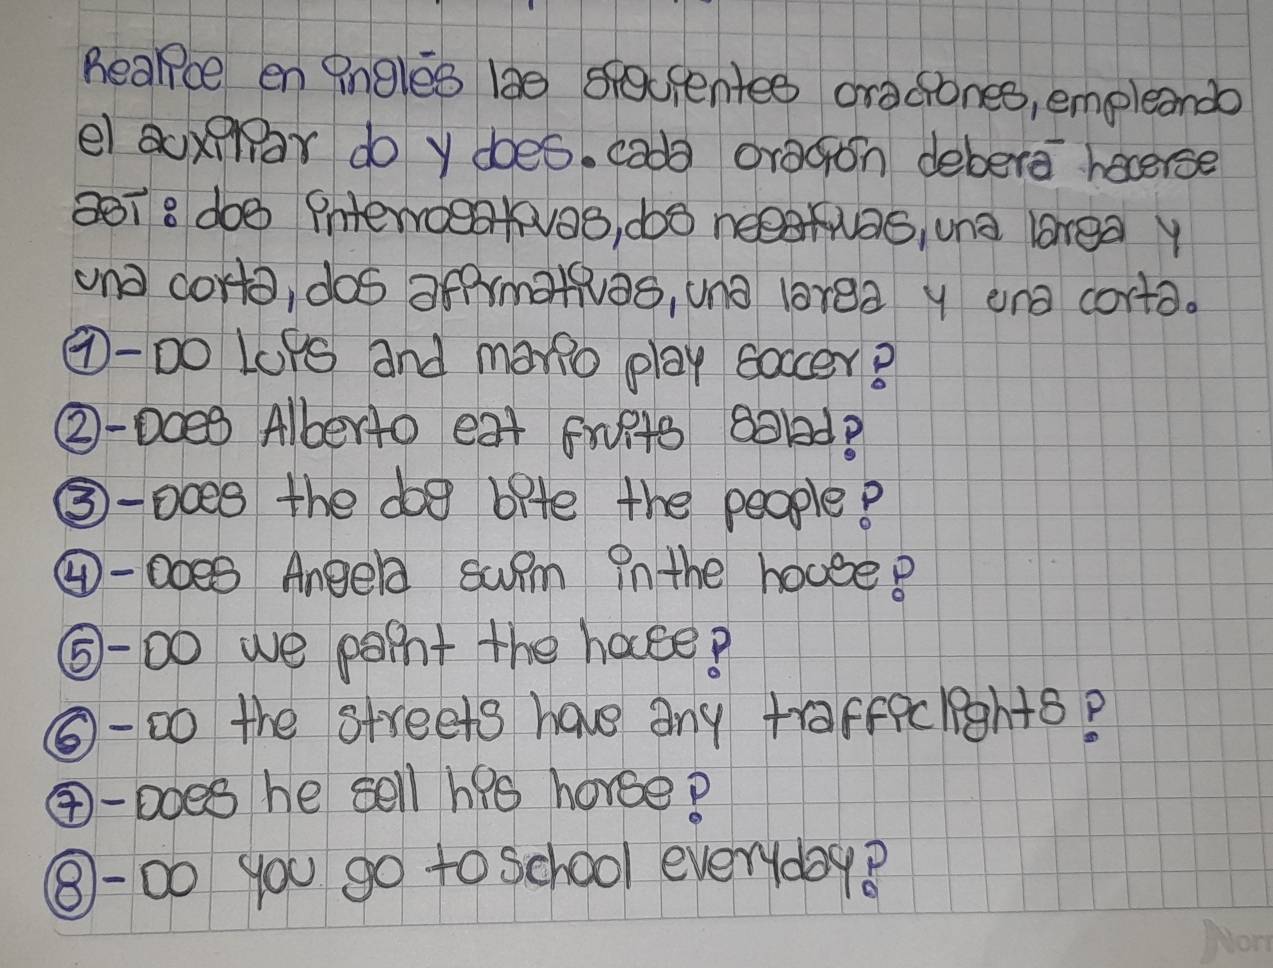 Realice en inglés las siguientes oraciones, empleando
el auxiliar do y does. cada oración deberá hacerse
así: dos interrogativas, dos negativas, una larga y
una corta, dos afirmativas, una larga y una corta.
①-Do Luis and mario play soccer?
②-Does Alberto eat fruits salad?
③-Does the dog bite the people?
④-Does Angela swim in the house?
⑤-Do we paint the house?
⑥-Do the streets have any traffic lights?
⑦-Does he sell his horse?
⑧-Do you go to school everyday?
Norr